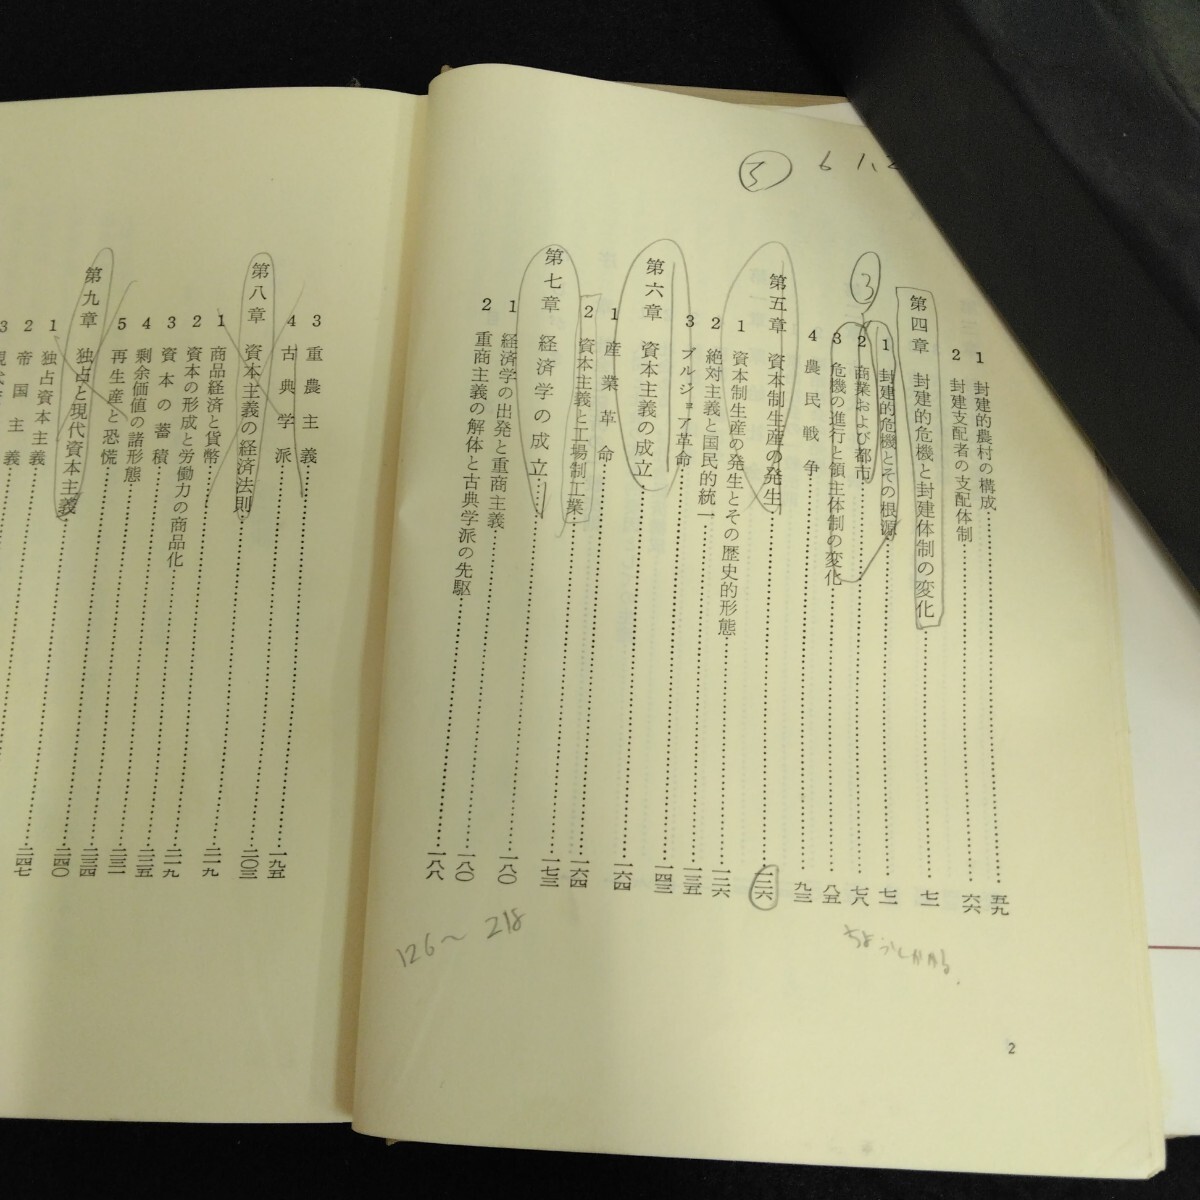 ③ 6 1、2
1 封建的農村の構成……五九
2 封建支配者の支配体制……六六
第四章 封建的危機と封建体制の変化……七一
③
1 封建的危機とその根源……七一
2 商業および都市……七八
3 危機の進行と領主体制の変化……八五
4 農民戦争……九三
第五章 資本制生産の発生……一二六
1 資本制生産の発生とその歴史的形態……一二六
2 絶対主義と国民的統一……一三五
3 ブルジョア革命……一四三
第六章 資本主義の成立……一六四
1 産業革命……一六四
2 資本主義と工場制工業……一七三
第七章 経済学の成立……一八〇
1 経済学の出発と重商主義……一八〇
2 重商主義の解体と古典学派の先駆……一八八
126〜218
2
3 重農主義……一九五
4 古典学派……二〇三
第八章 資本主義の経済法則……二一九
1 商品経済と貨幣……二一九
2 資本の形成と労働力の商品化
3 資本の蓄積
4 剰余価値の諸形態
5 再生産と恐慌
第九章 独占と現代資本主義……二四〇
1 独占資本主義……二四〇
2 帝国主義……二四七
3